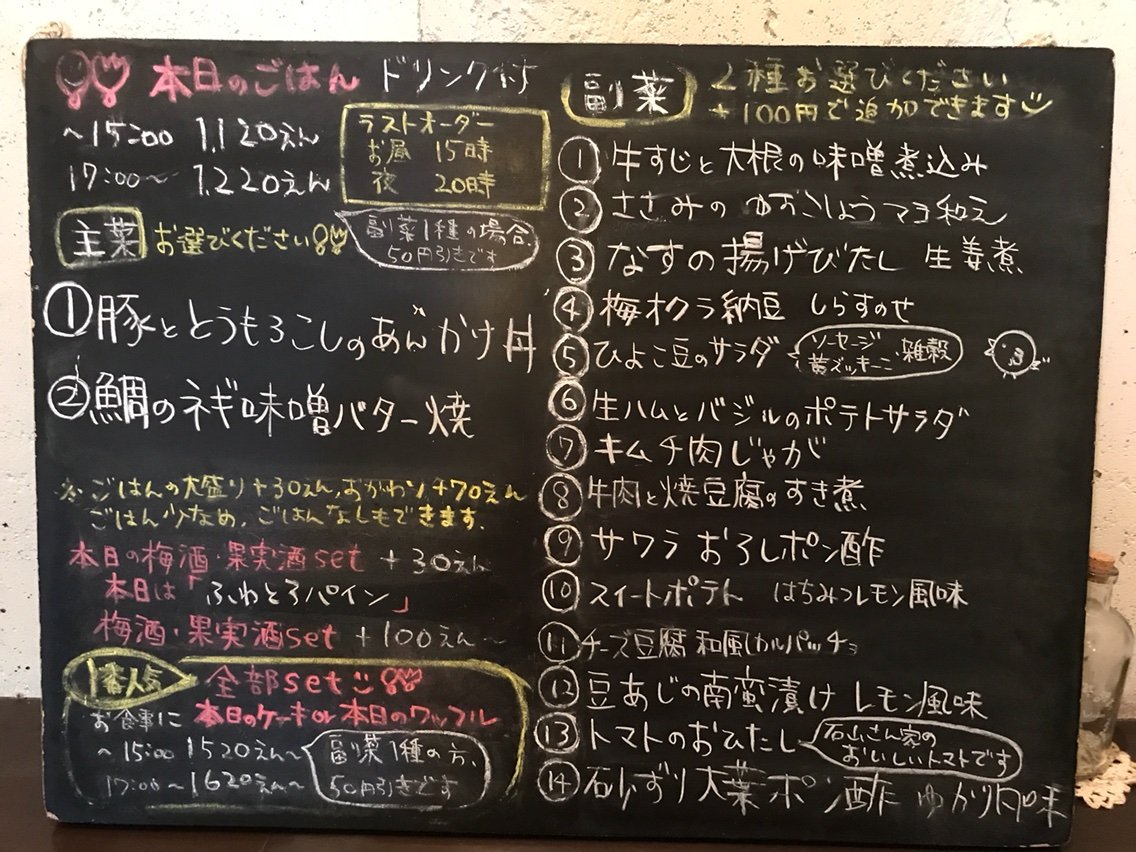 本日のごはん ドリンク付
～15:00 1,120えん
17:00～ 1,220えん
ラストオーダー
お昼 15時
夜 20時
主菜 お選びください
副菜1種の場合、
50円引きです
①豚ととうもろこしのあんかけ丼
②鯛のネギ味噌バター焼
※ごはんの大盛り+30えん、おかわり+70えん
ごはん少なめ、ごはんなしもできます。
本日の梅酒・果実酒set +30えん
本日は「ふわとろパイン」
梅酒・果実酒set +100えん～
1番人気 全部set
お食事に 本日のケーキor本日のワッフル
～15:00 1520えん～
17:00～1620えん～
副菜1種の方、
50円引きです
副菜 2種お選びください
+100円で追加できます
① 牛すじと大根の味噌煮込み
② ささみのゆずこしょうマヨ和え
③ なすの揚げびたし 生姜煮
④ 梅オクラ納豆 しらすのせ
⑤ ひよこ豆のサラダ
ソーセージ
黄ズッキーニ・雑穀
⑥ 生ハムとバジルのポテトサラダ
⑦ キムチ肉じゃが
⑧ 牛肉と焼豆腐のすき煮
⑨ サワラ おろしポン酢
⑩ スイートポテト はちみつレモン風味
⑪ チーズ豆腐 和風カルパッチョ
⑫ 豆あじの南蛮漬け レモン風味
⑬ トマトのおひたし
石山さん家の
おいしいトマトです
⑭ 砂ずり大葉ポン酢 ゆかり風味